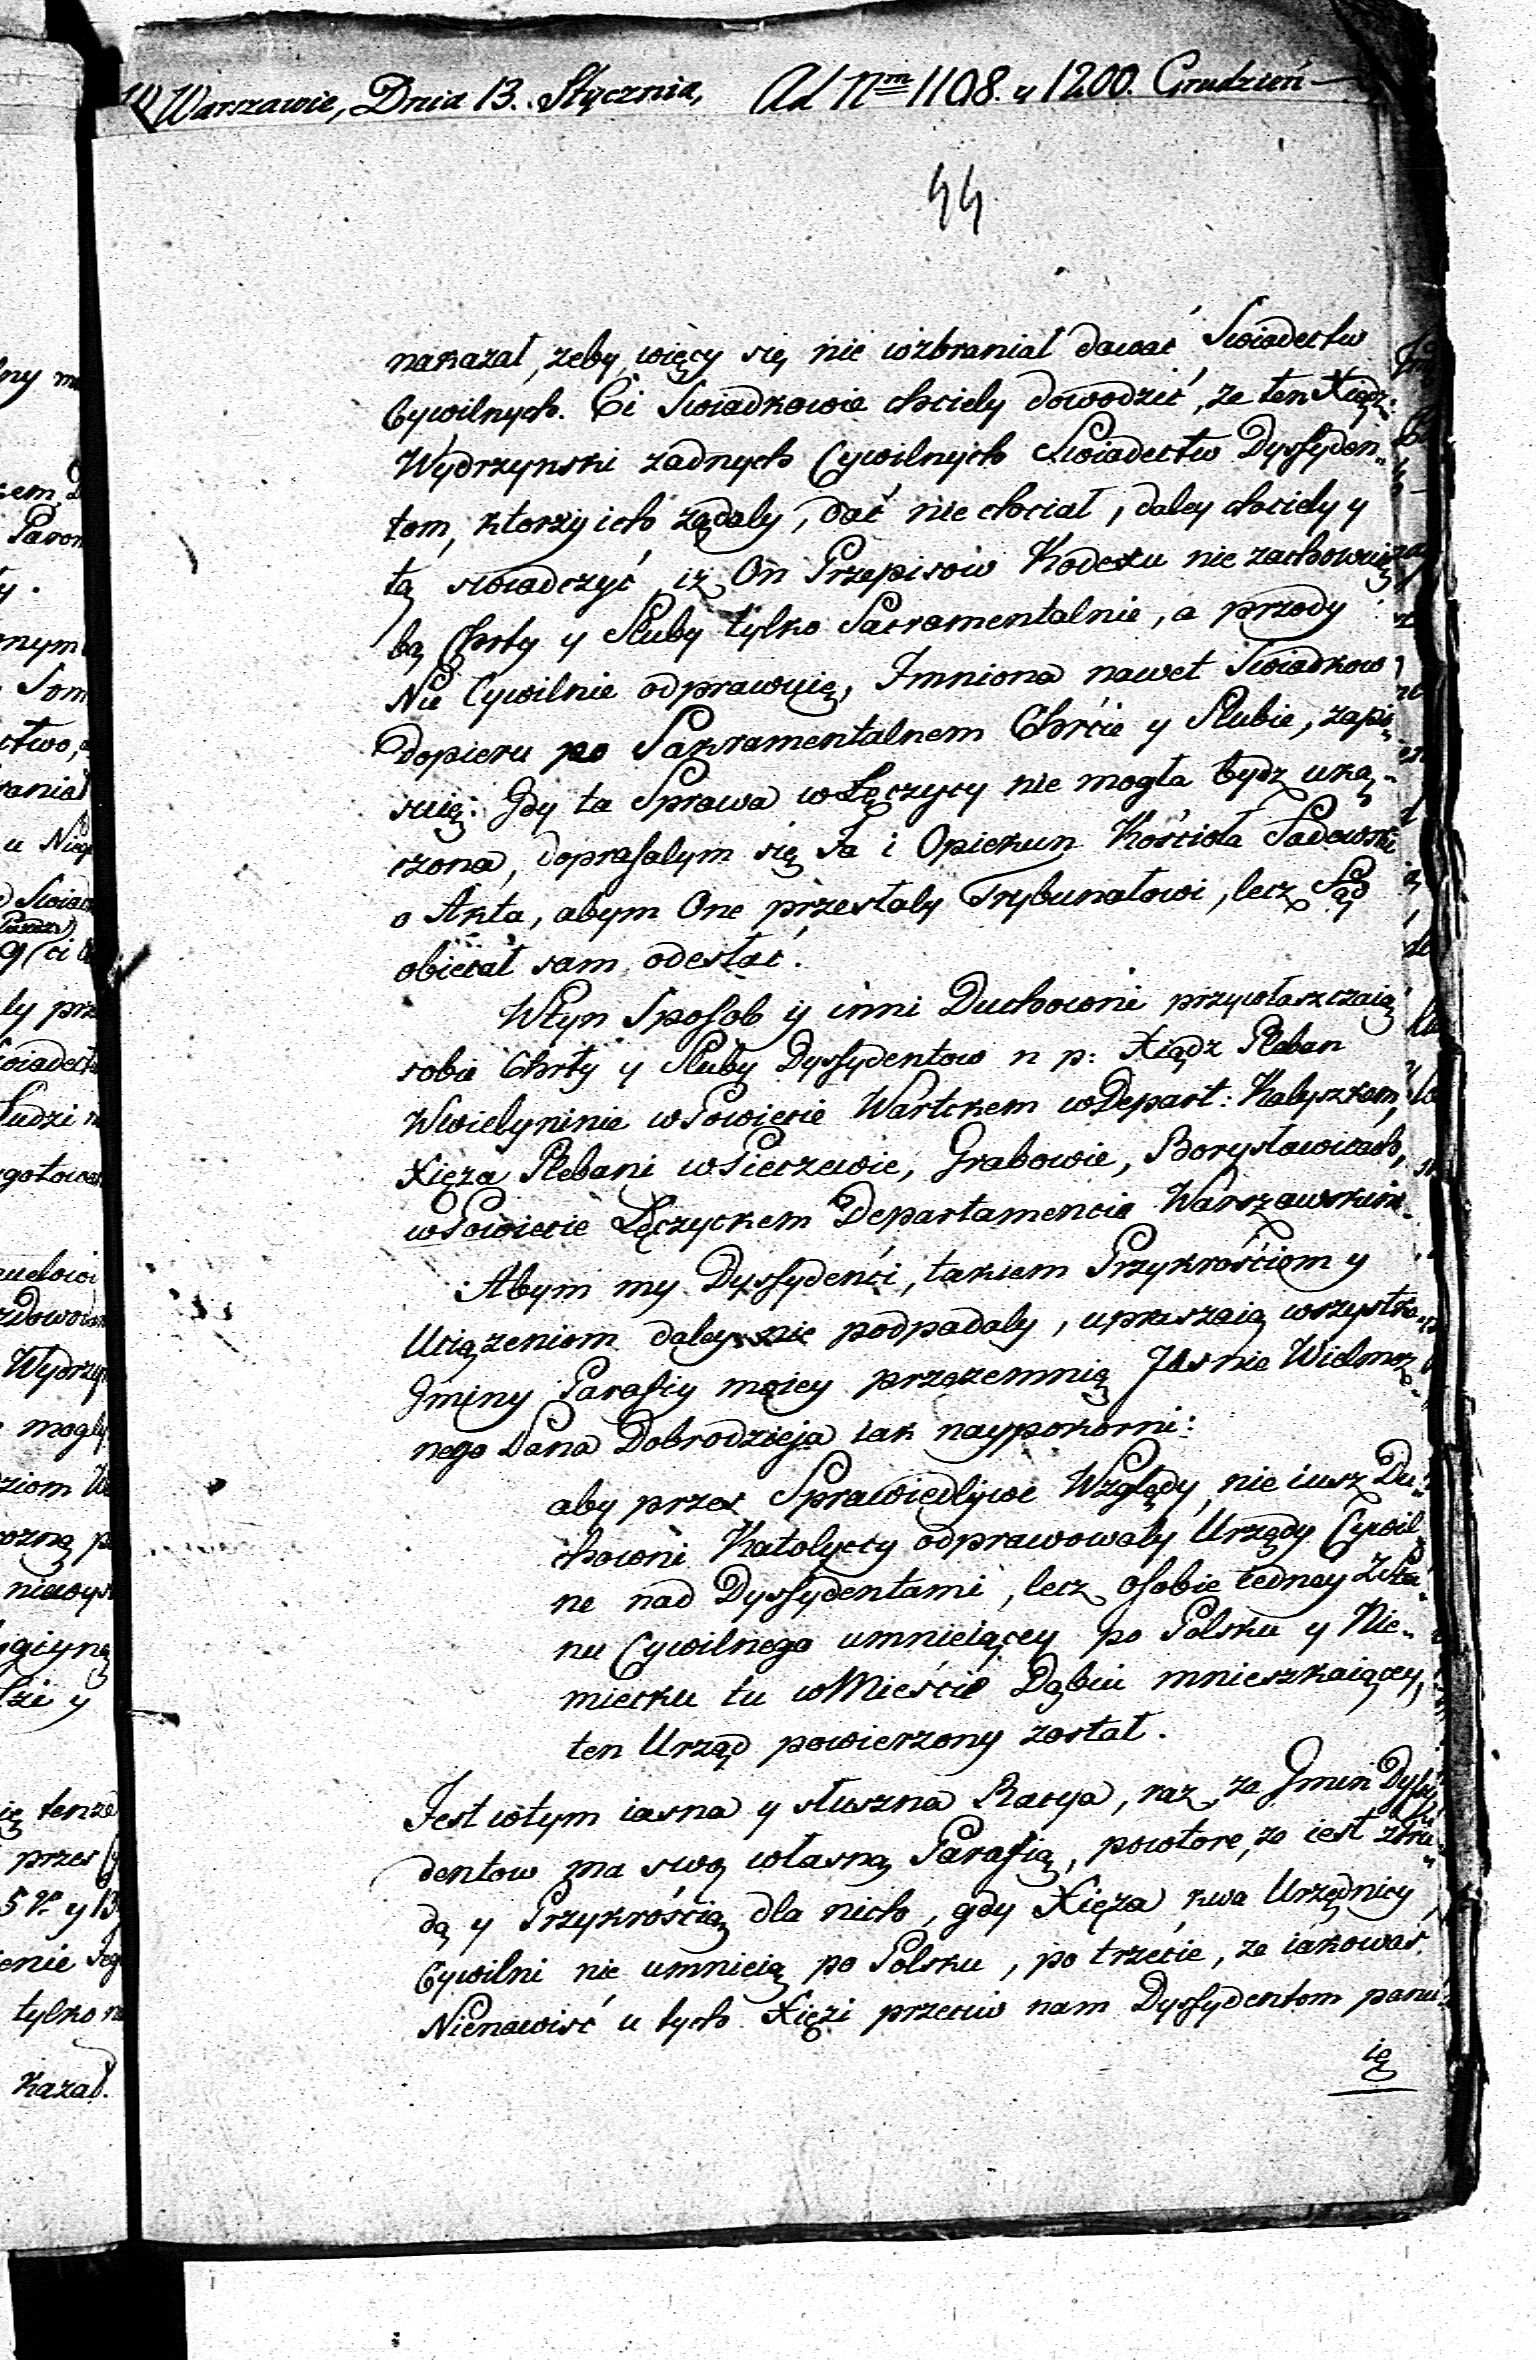 W Warszawie, Dnia 13. Stycznia, Ad Nm 1108. y 1200. Grudzień
44
nakazał, zeby więcy się nie wzbraniał dawać Swiadectw
Cywilnych. Ci Swiadkowie chciely dowodzić, ze ten Xiędz
Wydrzynski zadnych Cywilnych Swiadectw Dyssyden„
tom, ktorzy ich ządaly, dać nie chciał, daley chciely y
tą swiadczyć, iz On Przepisow Kodexu nie zachowuię
bą Chrty y Sluby tylko Sacramentalnie, a przody
Nie Cywilnie odprawuię, Imniona nawet Swiadkow
dopieru po Sakramentalnem Chrćie y Slubie, zapi„
suię: Gdy ta Sprawa w Łęczycy nie mogła bydz uką„
czona, doprasalym się Ja i Opiekun Kościoła Sadowski
o Akta, abym One przestaly Trybunałowi, lecz Sąd
obiecał sam odesłać.
W tyn Sposob y inni Duchowni przywłaszczaią
sobie Chrty y Sluby Dyssydentow n p: Xiądz Pleban
W Swielyninie w Powiecie Wartckem w Depart: Kalyszkem,
Xięza Plebani w Pieczewie, Grabowie, Borysławicach,
w Powiecie Łęczyckem Departamencie Warszawskim.
Abym my Dyssydenći, takiem Przykrośćiom y
Uciązeniom daley nie podpadaly, upraszaią wszystke
Gminy Parafiy moiey przezemnię Jasnie Wielmoz„
nego Pana Dobrodzieja iak naypokorni:
aby przes Sprawiedlywe Względy, nie iusz Du„
chowni Katolyccy odprawowaly Urzędy Cywil„
ne nad Dyssydentami, lecz osobie iedney Sta„
nu Cywilnego umnieiącey po Polsku y Nie„
miecku tu w Mieście Dąbiu mnieszkaiącey,
ten Urząd powierzony został.
Jest w tym iasna y słuszna Racya, raz, ze Gmin Dyssy„
dentow ma swą własną Parafią, powtore, ze iest z tru„
dą y Przykrośćią dla nich, gdy Xięza kwa Urzędnicy
Cywilni nie umnieią po Polsku, po trzecie, ze iakowas
Nienawisć u tych Xięzi przeciw nam Dyssydentom panu„
ię